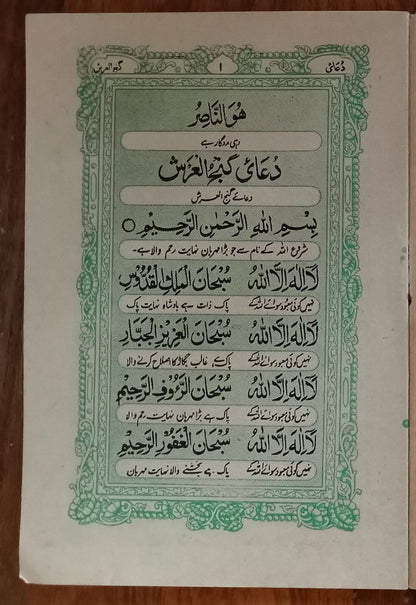 دُعائ ۱ گنج العرش
هُوَ النَّاصِرُ
وہی مددگار ہے
دُعَائ گَنْجُ الْعَرْشِ
دعائے گنج العرش
بِسْمِ اللهِ الرَّحْمٰنِ الرَّحِيْمِ
شروع اللہ کے نام سے جو بڑا مہربان نہایت رحم والا ہے۔
لَآ اِلٰهَ اِلَّا اللهُ سُبْحَانَ الْمَلِكِ الْقُدُّوْسِ
نہیں کوئی معبود سوائے اللہ کے پاک ذات ہے بادشاہ نہایت پاک
لَآ اِلٰهَ اِلَّا اللهُ سُبْحَانَ الْعَزِيْزِ الْجَبَّارِ
نہیں کوئی معبود سوائے اللہ کے پاک ہے غالب بگاڑ کا اصلاح کرنے والا
لَآ اِلٰهَ اِلَّا اللهُ سُبْحَانَ الرَّءُوْفِ الرَّحِيْمِ
نہیں کوئی معبود سوائے اللہ کے پاک ہے بڑا مہربان نہایت رحم والا
لَآ اِلٰهَ اِلَّا اللهُ سُبْحَانَ الْغَفُوْرِ الرَّحِيْمِ
نہیں کوئی معبود سوائے اللہ کے پاک ہے بخشنے والا نہایت مہربان